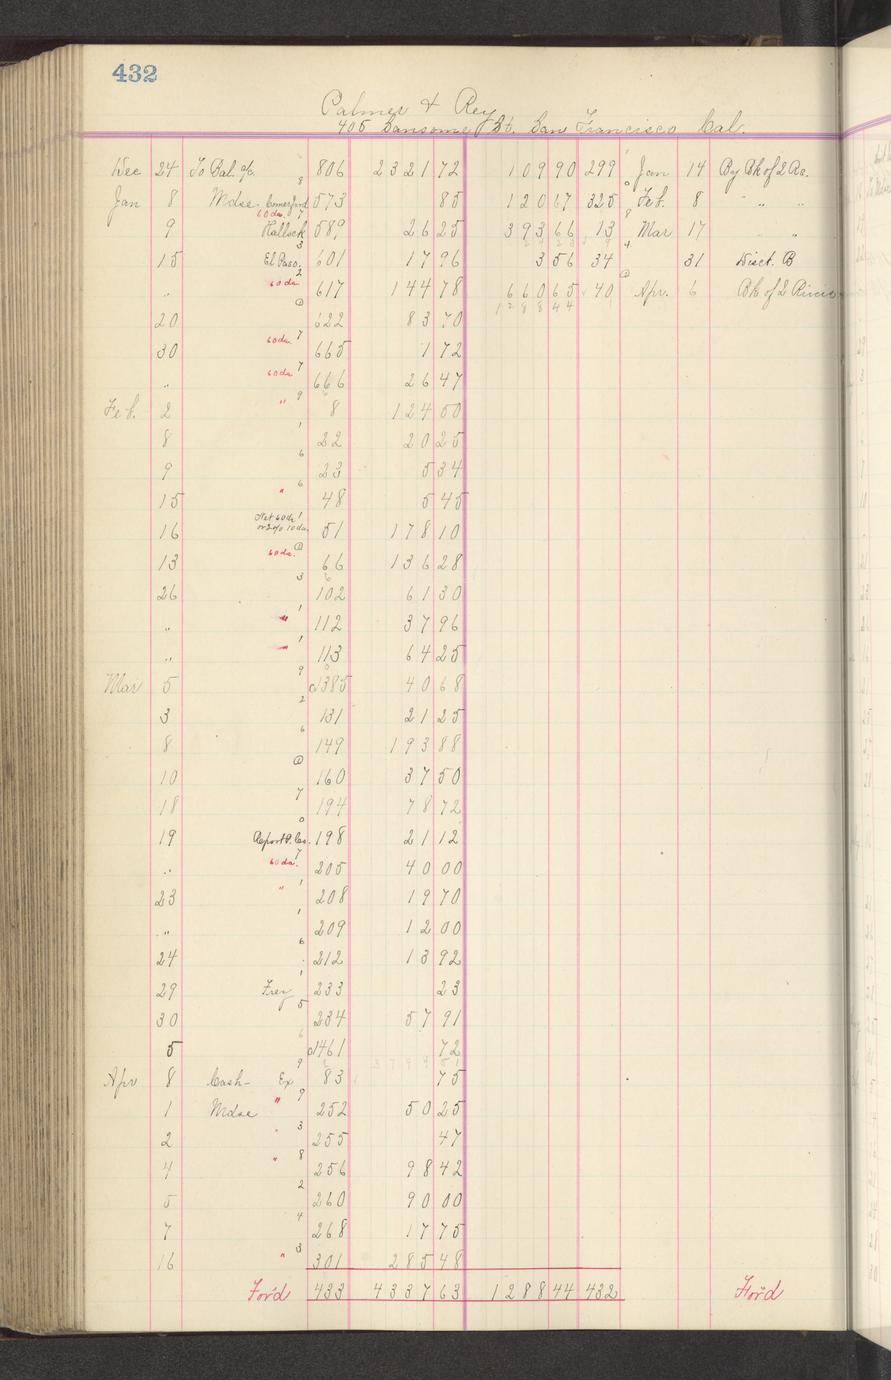 432
Palmer & Rey
405 Sansome St. San Francisco Cal.
Dec 24 To Bal. 806 2321 72 109 90 299 Jan 14 By Bk of 2 Rs.
Jan 8 Mdse. Comerford 573 85 120 67 325 Feb. 8 " "
60 ds.
9 Hallock 589 26 25 393 66 13 Mar 17 " "
15 El Paso. 601 17 96 3 56 34 31 Disct. B
" 60 ds 617 144 78 660 65 40 Apr. 6 Bk of 2 Rivers
1288 44
20 622 83 70
30 60 ds. 665 1 72
" 60 ds. 666 26 47
Feb. 2 " 8 124 00
8 22 20 25
9 23 5 34
15 " 48 5 45
16 Net 60 ds or 2% 10 ds. 51 178 10
13 60 ds. 66 136 28
26 102 61 30
" " 112 37 96
" " 113 64 25
Mar 5 J385 40 68
3 131 21 25
8 149 193 88
10 160 37 50
18 194 78 72
19 Report P. Co. 198 21 12
" 60 ds. 205 40 00
23 " 208 19 70
" 209 12 00
24 212 13 92
29 Frey 233 23
30 234 57 91
5 J461 72
Apr 8 Cash - Ex 83 75
1 Mdse " 252 50 25
2 " 255 47
4 " 256 98 42
5 260 90 00
7 268 17 75
16 " 301 285 48
For'd 433 4337 63 1288 44 432 For'd